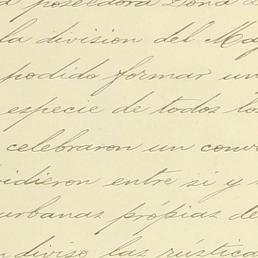 poseedora Doña
la division del May
podido formar un
especie de todos los
celebraron un conv
idieron entre sí y
urbanas própias de
ndiviso las rústica